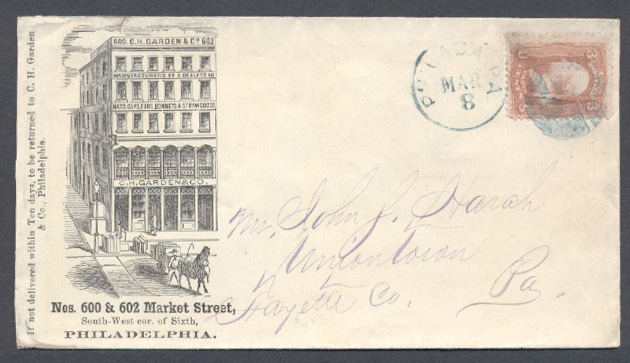 If not delivered within Ten days, to be returned to C. H. Garden
& Co., Philadelphia.
600 C.H. GARDEN & Co 602
MANUFACTURERS OF & DEALERS IN
HATS, CAPS, FURS, BONNETS & STRAW GOODS
C.H. GARDEN & CO.
Nos. 600 & 602 Market Street,
South-West cor. of Sixth,
PHILADELPHIA.
PHILADA PA
MAR
8
3 3
Mr. John J. Harah
Uniontown
Fayette Co. Pa.